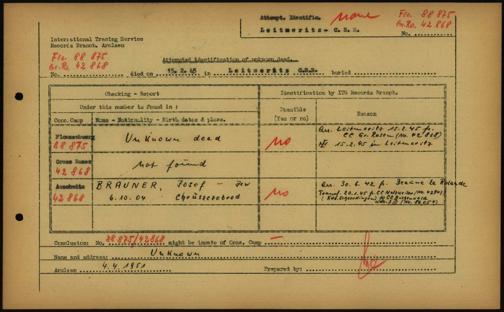 Attempt. Identific. none
Flo. 88 875
Leitmeritz - C.S.R.
Gr.Ro. 42 868
No.
International Tracing Service
Records Branch, Arolsen
Flo. 88 875
Gr.Ro. 42 868
Attempted identification of unknown dead.
No. died on 15.2.45 in Leitmeritz C.S.R. buried
Checking - Report
Identification by ITS Records Branch.
Under this number is found in :
Possible
(Yes or no)
Reason
Conc. Camp
Name - Nationality - Birth dates & place.
Flossenbuerg
88 875
Unknown dead
no
Arr. Leitmeritz 15.2.45 fr.
CC Gr. Rosen (No. 42 868)
15.2.45 in Leitmeritz
Gross Rosen
42 868
not found
Auschwitz
42 868
BRAUNER, Josef - Jew
6.10.04
no
Arr. 30.6.42 fr. Beaune la Rolande
Conclusion: No. 88875/42868 might be inmate of Conc. Camp -
Name and address: Unknown
Arolsen 4.4.1951
Prepared by: